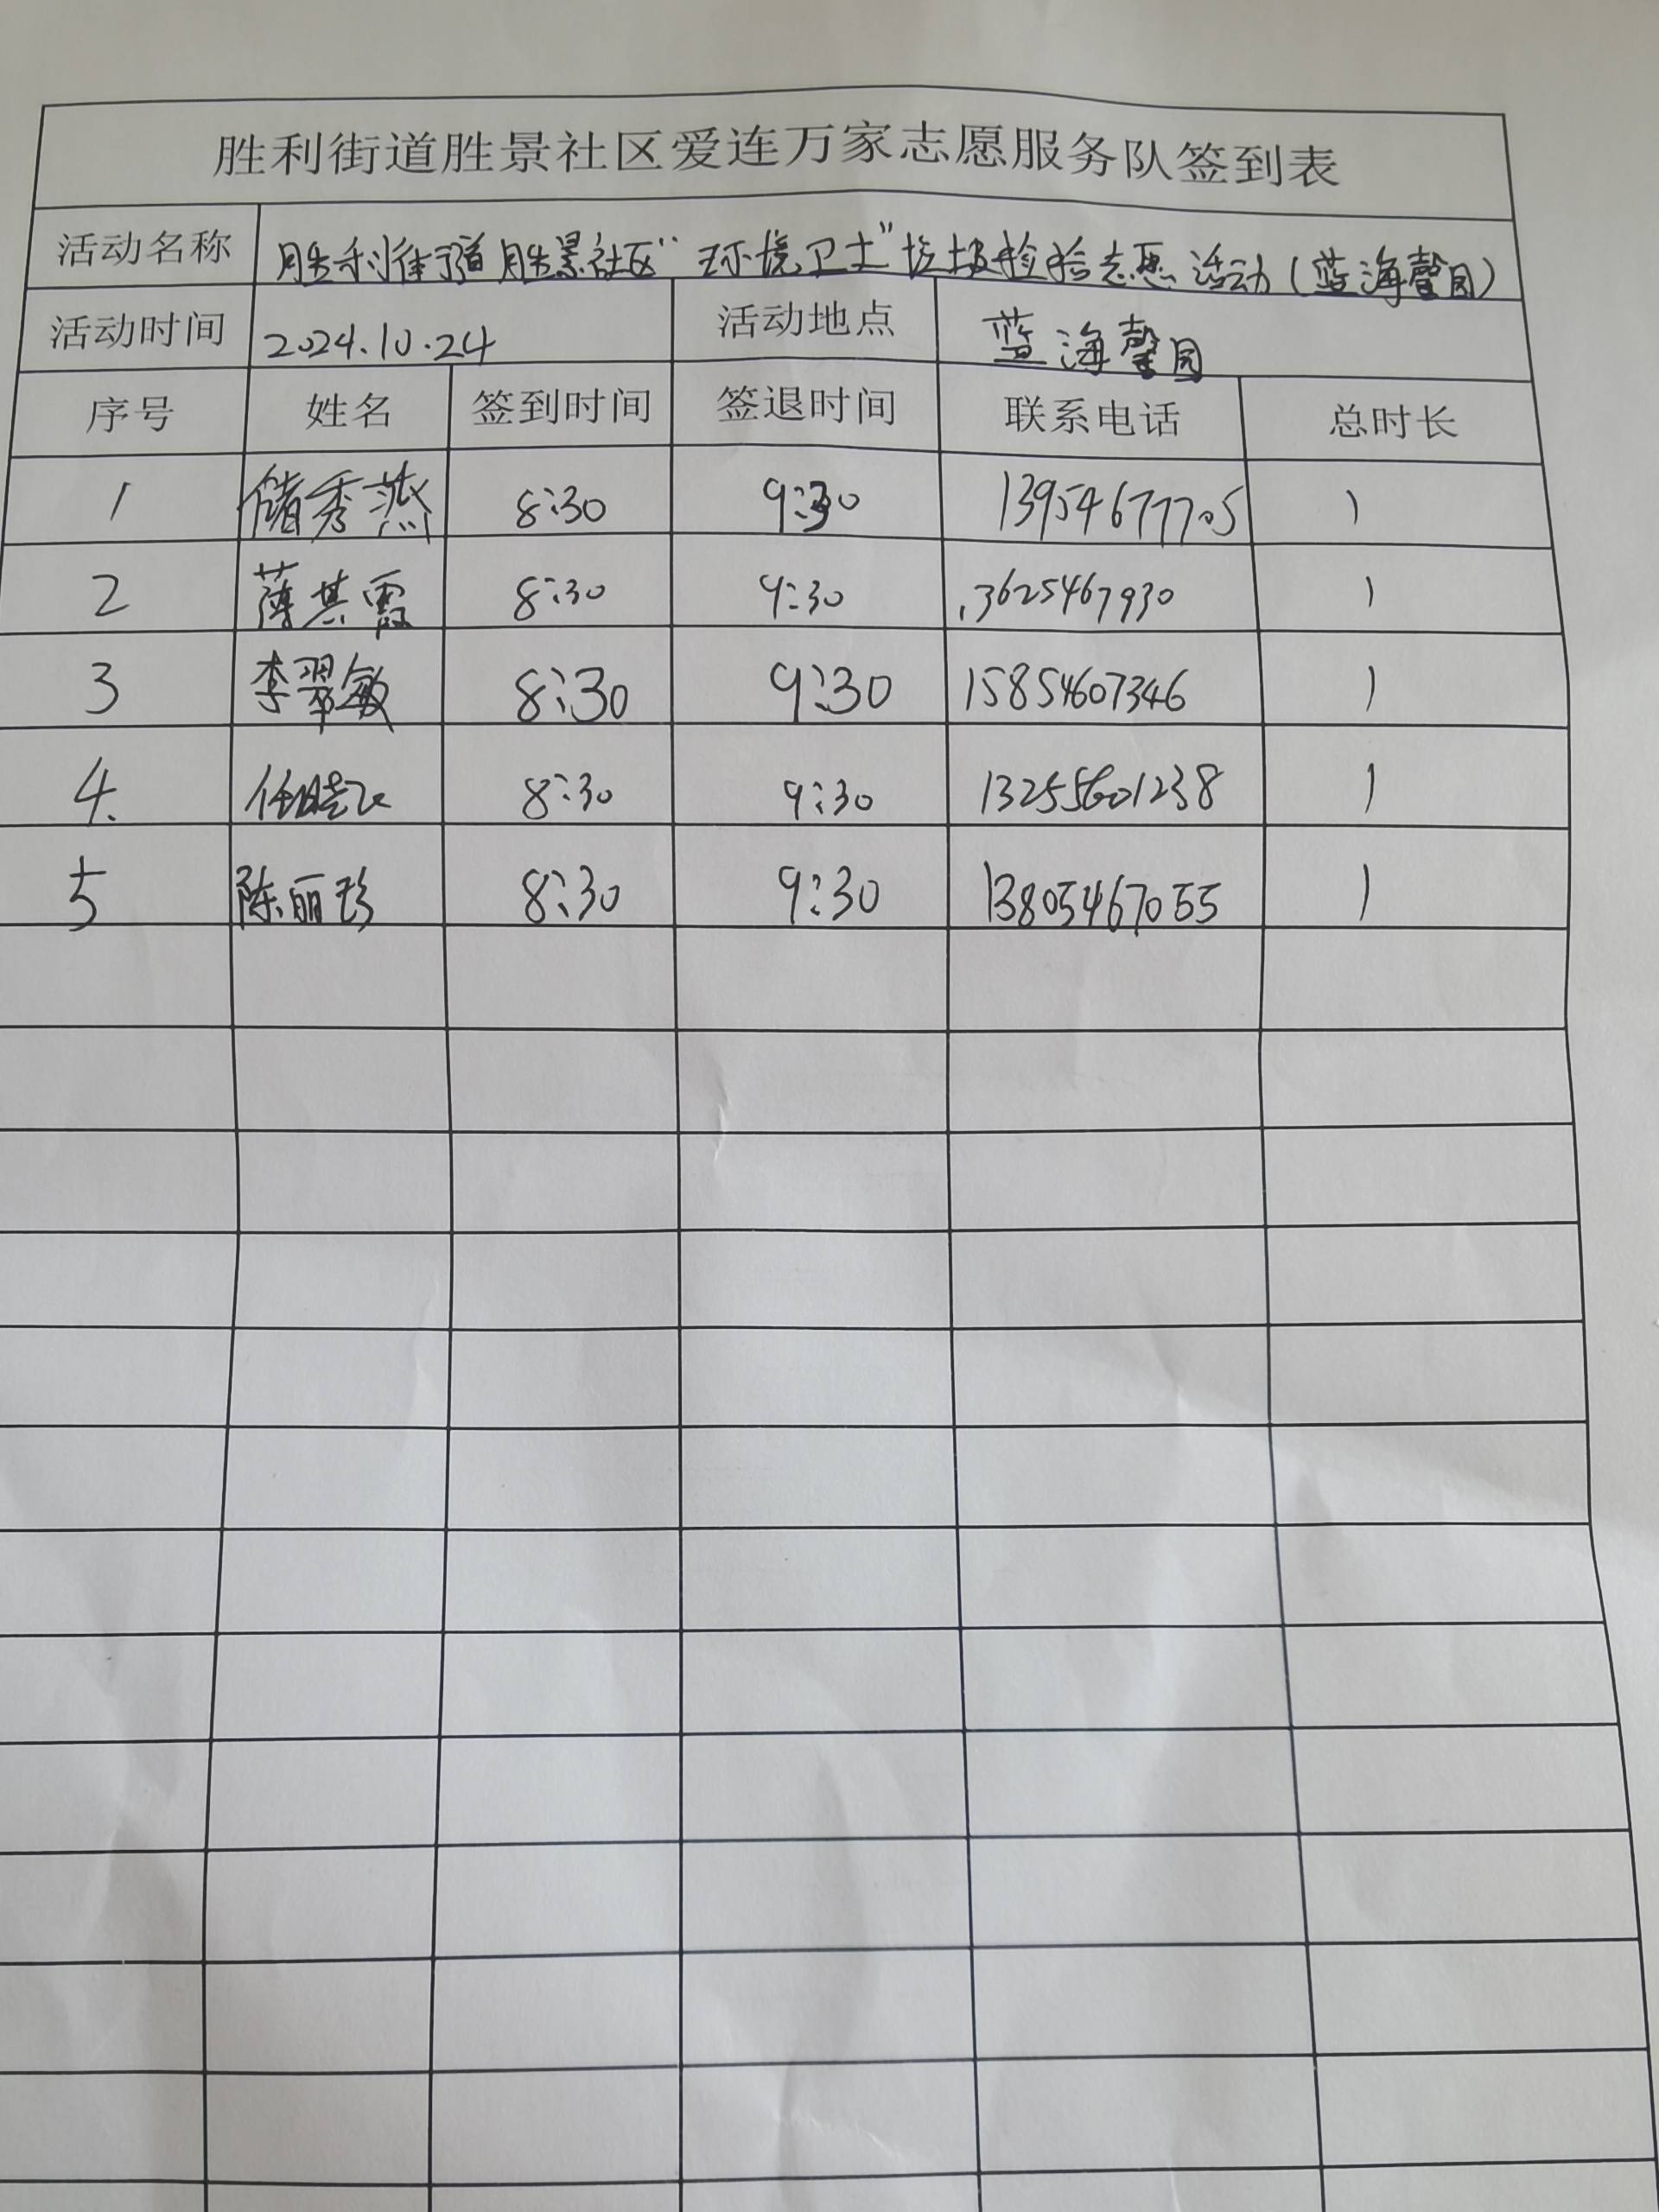 胜利街道胜景社区爱连万家志愿服务队签到表
活动名称 胜利街道胜景社区“环境卫士”垃圾检拾志愿活动(蓝海馨园)
活动时间 2024.10.24 活动地点 蓝海馨园
序号 姓名 签到时间 签退时间 联系电话 总时长
1 储秀燕 8:30 9:30 13954677705 1
2 薄其霞 8:30 9:30 13625467930 1
3 李翠敏 8:30 9:30 15854607346 1
4. 任晓 8:30 9:30 13255601238 1
5 陈丽珍 8:30 9:30 13805467055 1